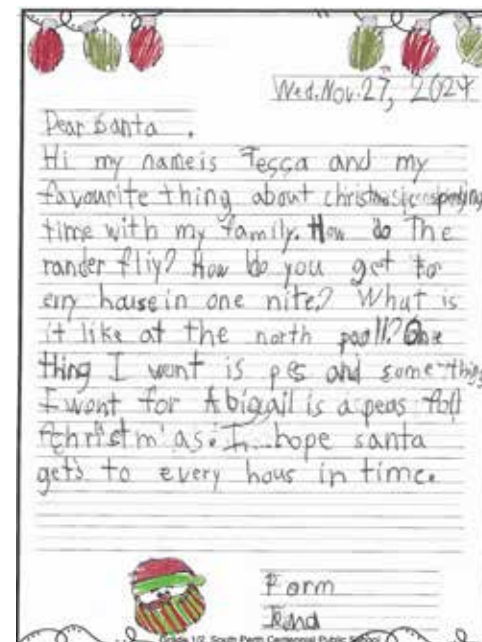 Wed. Nov. 27, 2024
Dear Santa,
Hi my name is Tessa and my
favourite thing about christmas is spending
time with my family. How do The
rander fliy? How do you get to
eiry house in one nite? What is
it like at the north pooll? One
thing I went is pes and some thing
I wont for Abigail is a peas foll
christm'as. I hope santa
get's to every hous in time.
Form
Grade 1/2, South Perth Centennial Public School